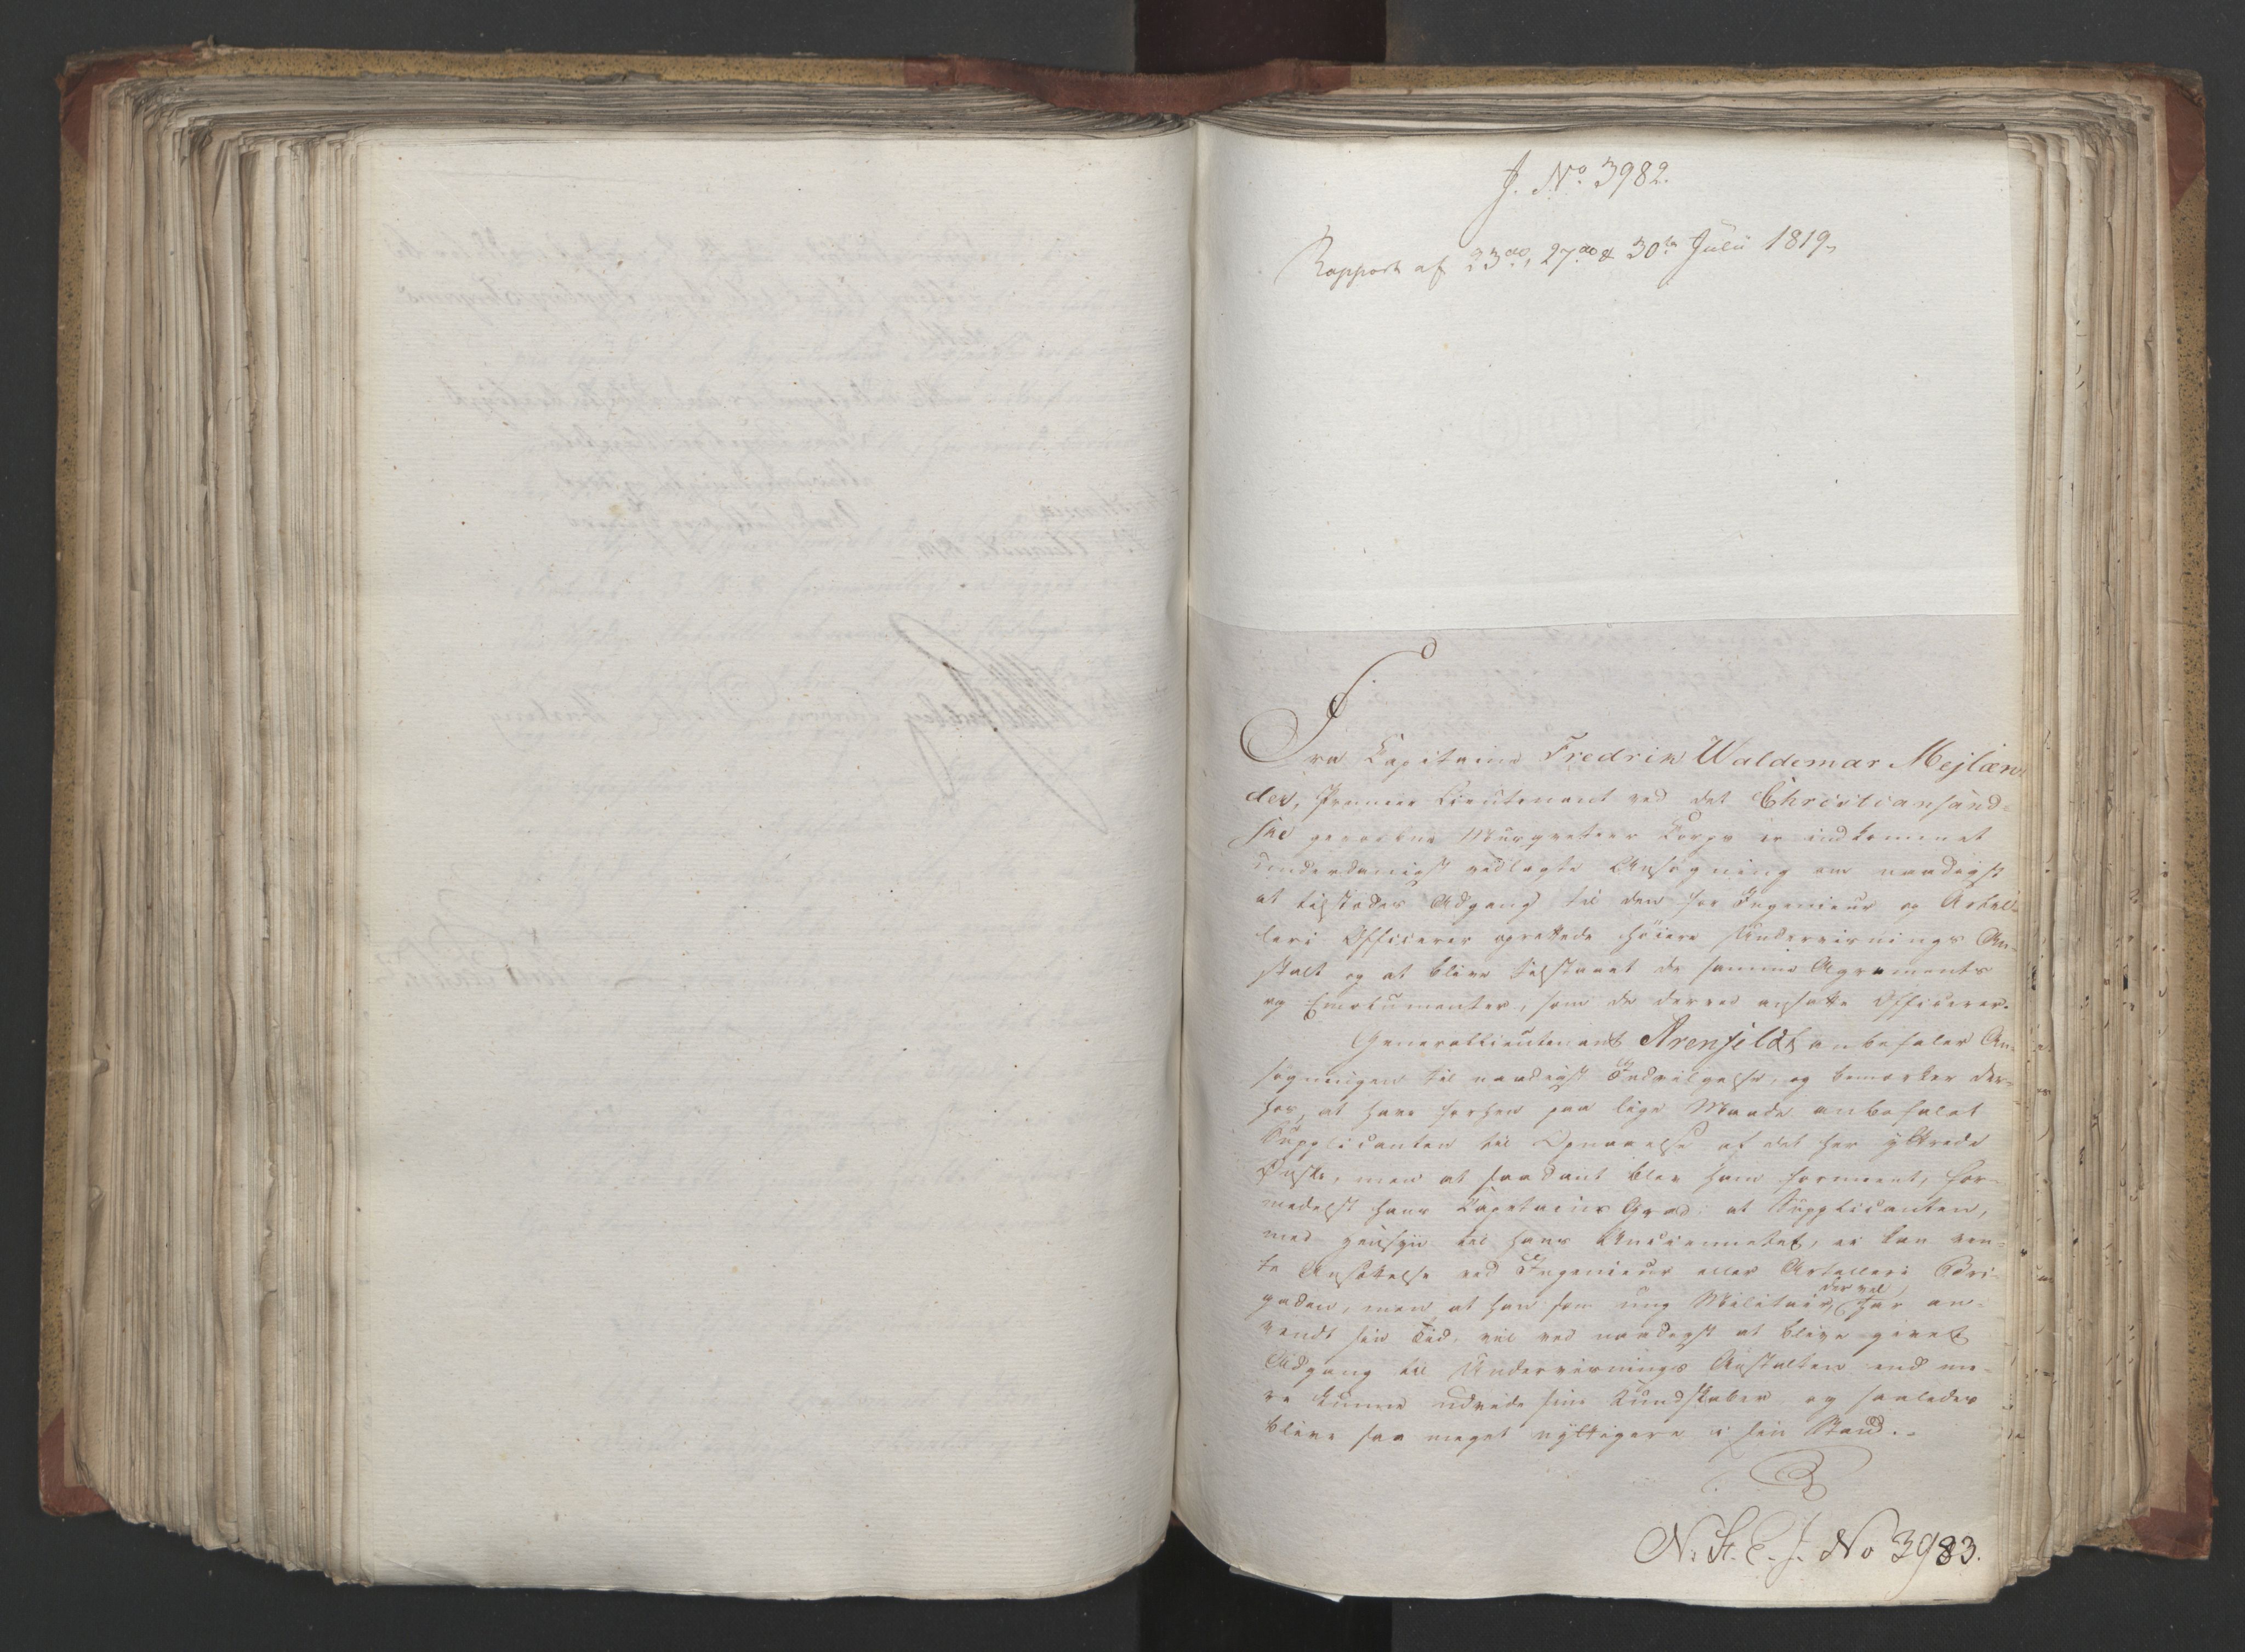 J. No. 3982.
Rapport af 23de, 27de & 30te Julii 1819,
Fra Capitaine Fredrik Waldemar Mejlæn-
der, Premier Lieutenant ved det Christiansand-
ske gevorbne Musqueteer Corps er indkommet
underdanigst vedlagte Ansøgning om naadigst
at tilstædes Adgang til den for Ingenieur og Artil-
leri Officerer oprettede höiere Undervisnings An-
stalt og at blive tilstaaet de samme Agrements
og Emolumenter, som de derved ansatte Officerer.
Generallieutenant Arenfeldt anbefaler An-
søgningen til naadigst Indvilgelse, og bemærker der-
hos, at have forhen paa lige Maade anbefalet
Supplicanten til Opnaaelse af det her yttrede
Ønske, men at saadant blev ham formeent, for-
medelst hans Capitains Grad; at Supplicanten,
med hensyn til hans Anciennetet, ei kan ven-
te Ansættelse ved Ingenieur eller Artilleri Bri-
gaden, men at han som ung Militair, der vel har an-
vendt sin Tid, vil ved naadigst at blive givet
Adgang til Undervisnings Anstalten end me-
re kunne udvide sine Kundskaber og saaledes
blive saa meget nyttigere i sin Stand.
N. St. E. J. No 3983.